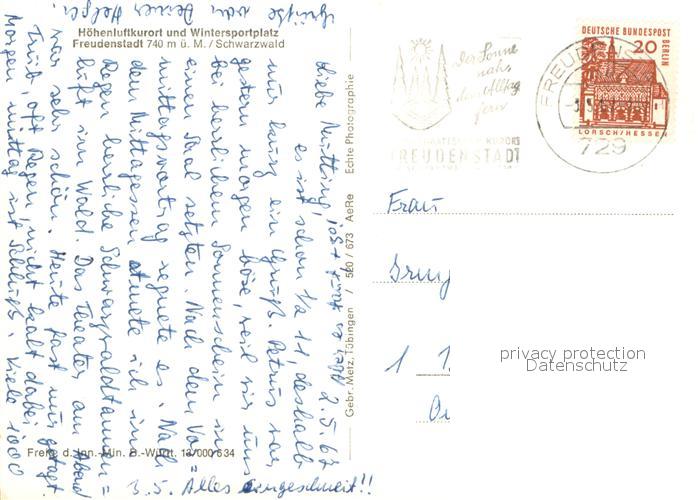 Höhenluftkurort und Wintersportplatz
Freudenstadt 740 m ü. M. / Schwarzwald
Liebe Mutting!
2.5.67
es ist schon ½ 11, deshalb
nur kurz ein Gruß.
gestern morgen böse, weil wir uns
bei herrlichem Sonnenschein in
einen Saal setzten. Nach dem Vor=
mittagsvortrag regnete es. Nach
dem Mittagessen atmete ich im
Regen herrliche Schwarzwaldtannen=
luft im Wald. Das Theater am Abend
war sehr schön. Heute fast nur getagt.
Trüb, oft Regen, nicht kalt dabei.
Morgen mittag ist Schluß. Viele 1000
Grüße von Deiner
3.5. Alles eingeschneit!!
Freig. d. Inn.-Min. B.-Württ. 13/000634
Gebr. Metz, Tübingen / 520 / 673 AeRe Echte Photographie
der Sonne
nah,
dem Alltag
fern
FREUDENSTADT
FREUDENSTADT
729
DEUTSCHE BUNDESPOST
BERLIN
20
LORSCH/HESSEN
Frau
1
privacy protection
Datenschutz